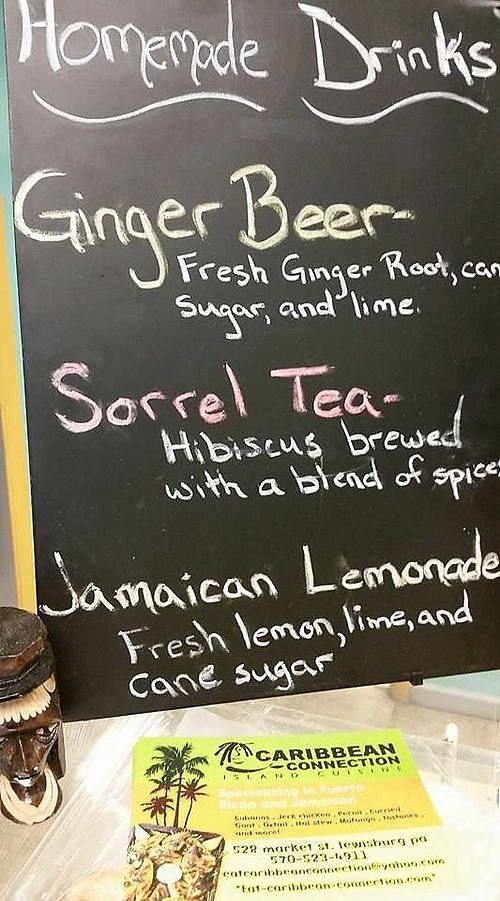 Homemade Drinks
Ginger Beer-
Fresh Ginger Root, can
Sugar, and lime.
Sorrel Tea-
Hibiscus brewed
with a blend of spices
Jamaican Lemonade
Fresh lemon, lime, and
cane sugar
CARIBBEAN
CONNECTION
ISLAND CUISINE
Specializing in Puerto
Rican and Jamaican
Cubanos, Jerk chicken, Pernil, Curried
Goat, Oxtail, Ital stew, Mofongo, tostones,
and more!
528 market st. lewisburg pa
570-523-4911
eatcaribbeanconnection@yahoo.com
"Eat-caribbean-connection.com"